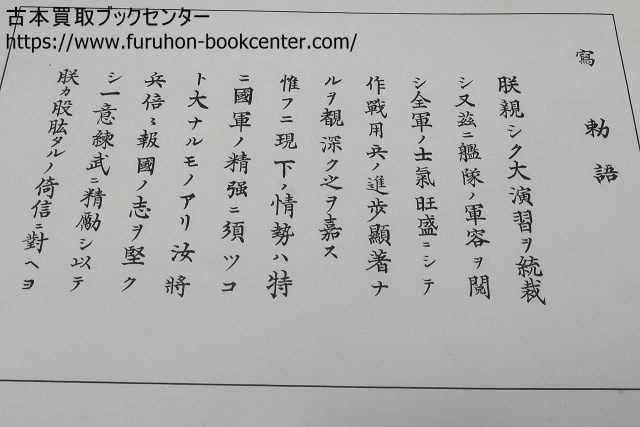 古本買取ブックセンター
https://www.furuhon-bookcenter.com/
寫
勅語
朕親シク大演習ヲ統裁
シ又茲ニ艦隊ノ軍容ヲ閲
シ全軍ノ士氣旺盛ニシテ
作戰用兵ノ進步顯著ナ
ルヲ覩深ク之ヲ嘉ス
惟フニ現下ノ情勢ハ特
ニ國軍ノ精强ニ須ツコ
ト大ナルモノアリ汝將
兵倍〻報國ノ志ヲ堅ク
シ一意練武ニ精勵シ以テ
朕カ股肱タルノ倚信ニ對ヘヨ